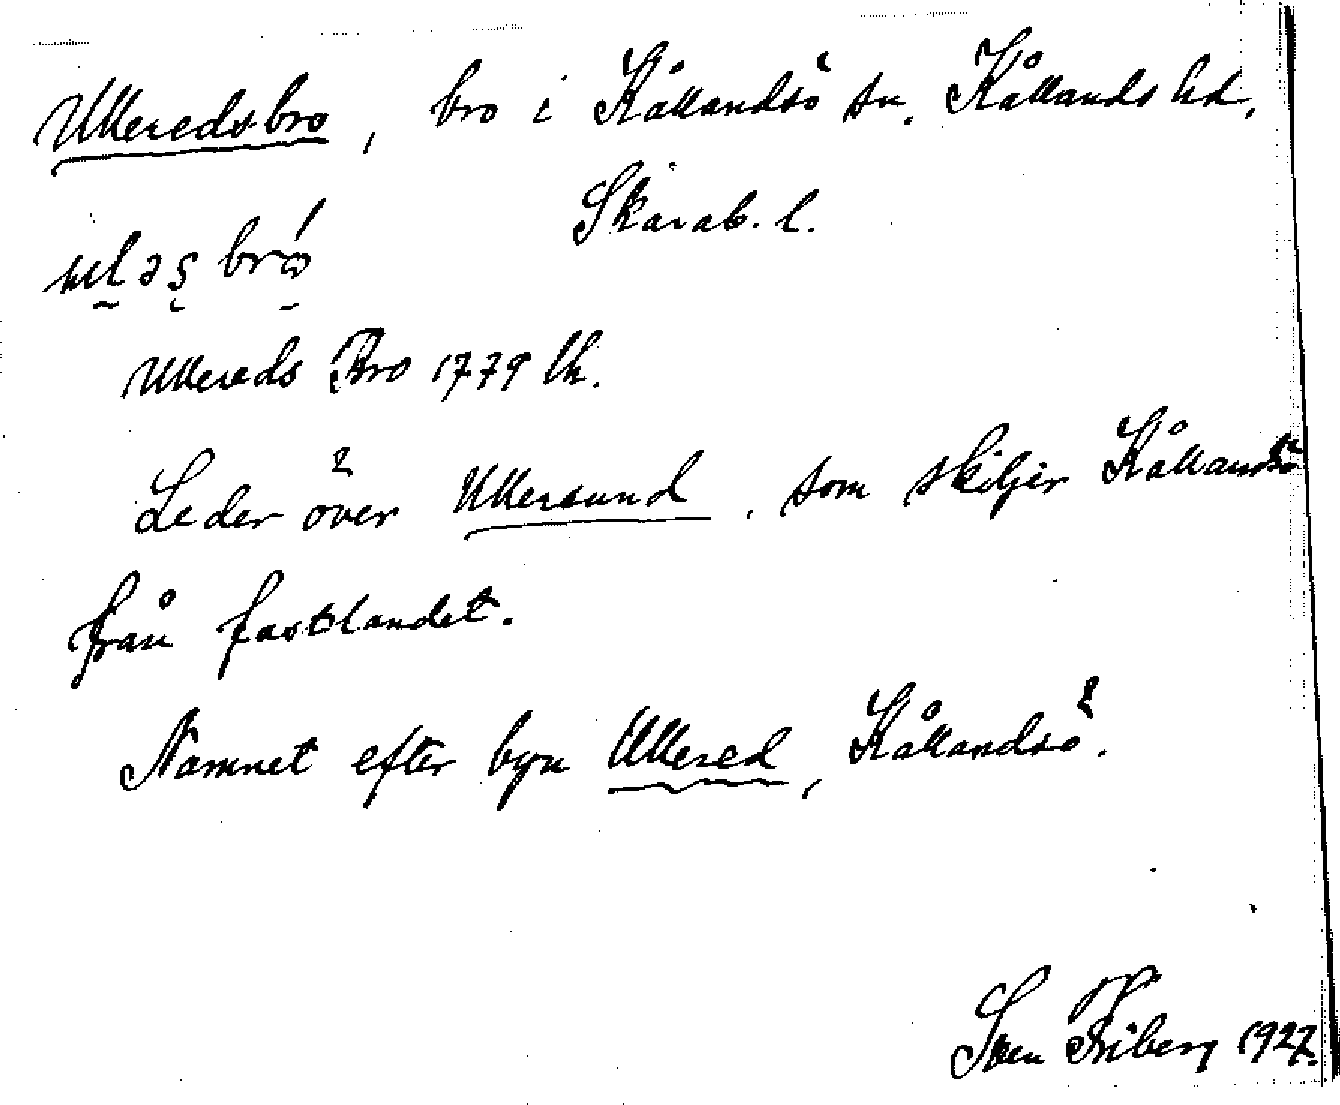 Ulleredsbro, bro i Kållandsö sn. Kållands hd.
Skarab. l.
Ullereds Bro 1779 lh.
Leder över Ullersund, som skiljer Kållandsö
från fastlandet.
Namnet efter byn Ullered, Kållandsö.
Sven Friberg 1927.